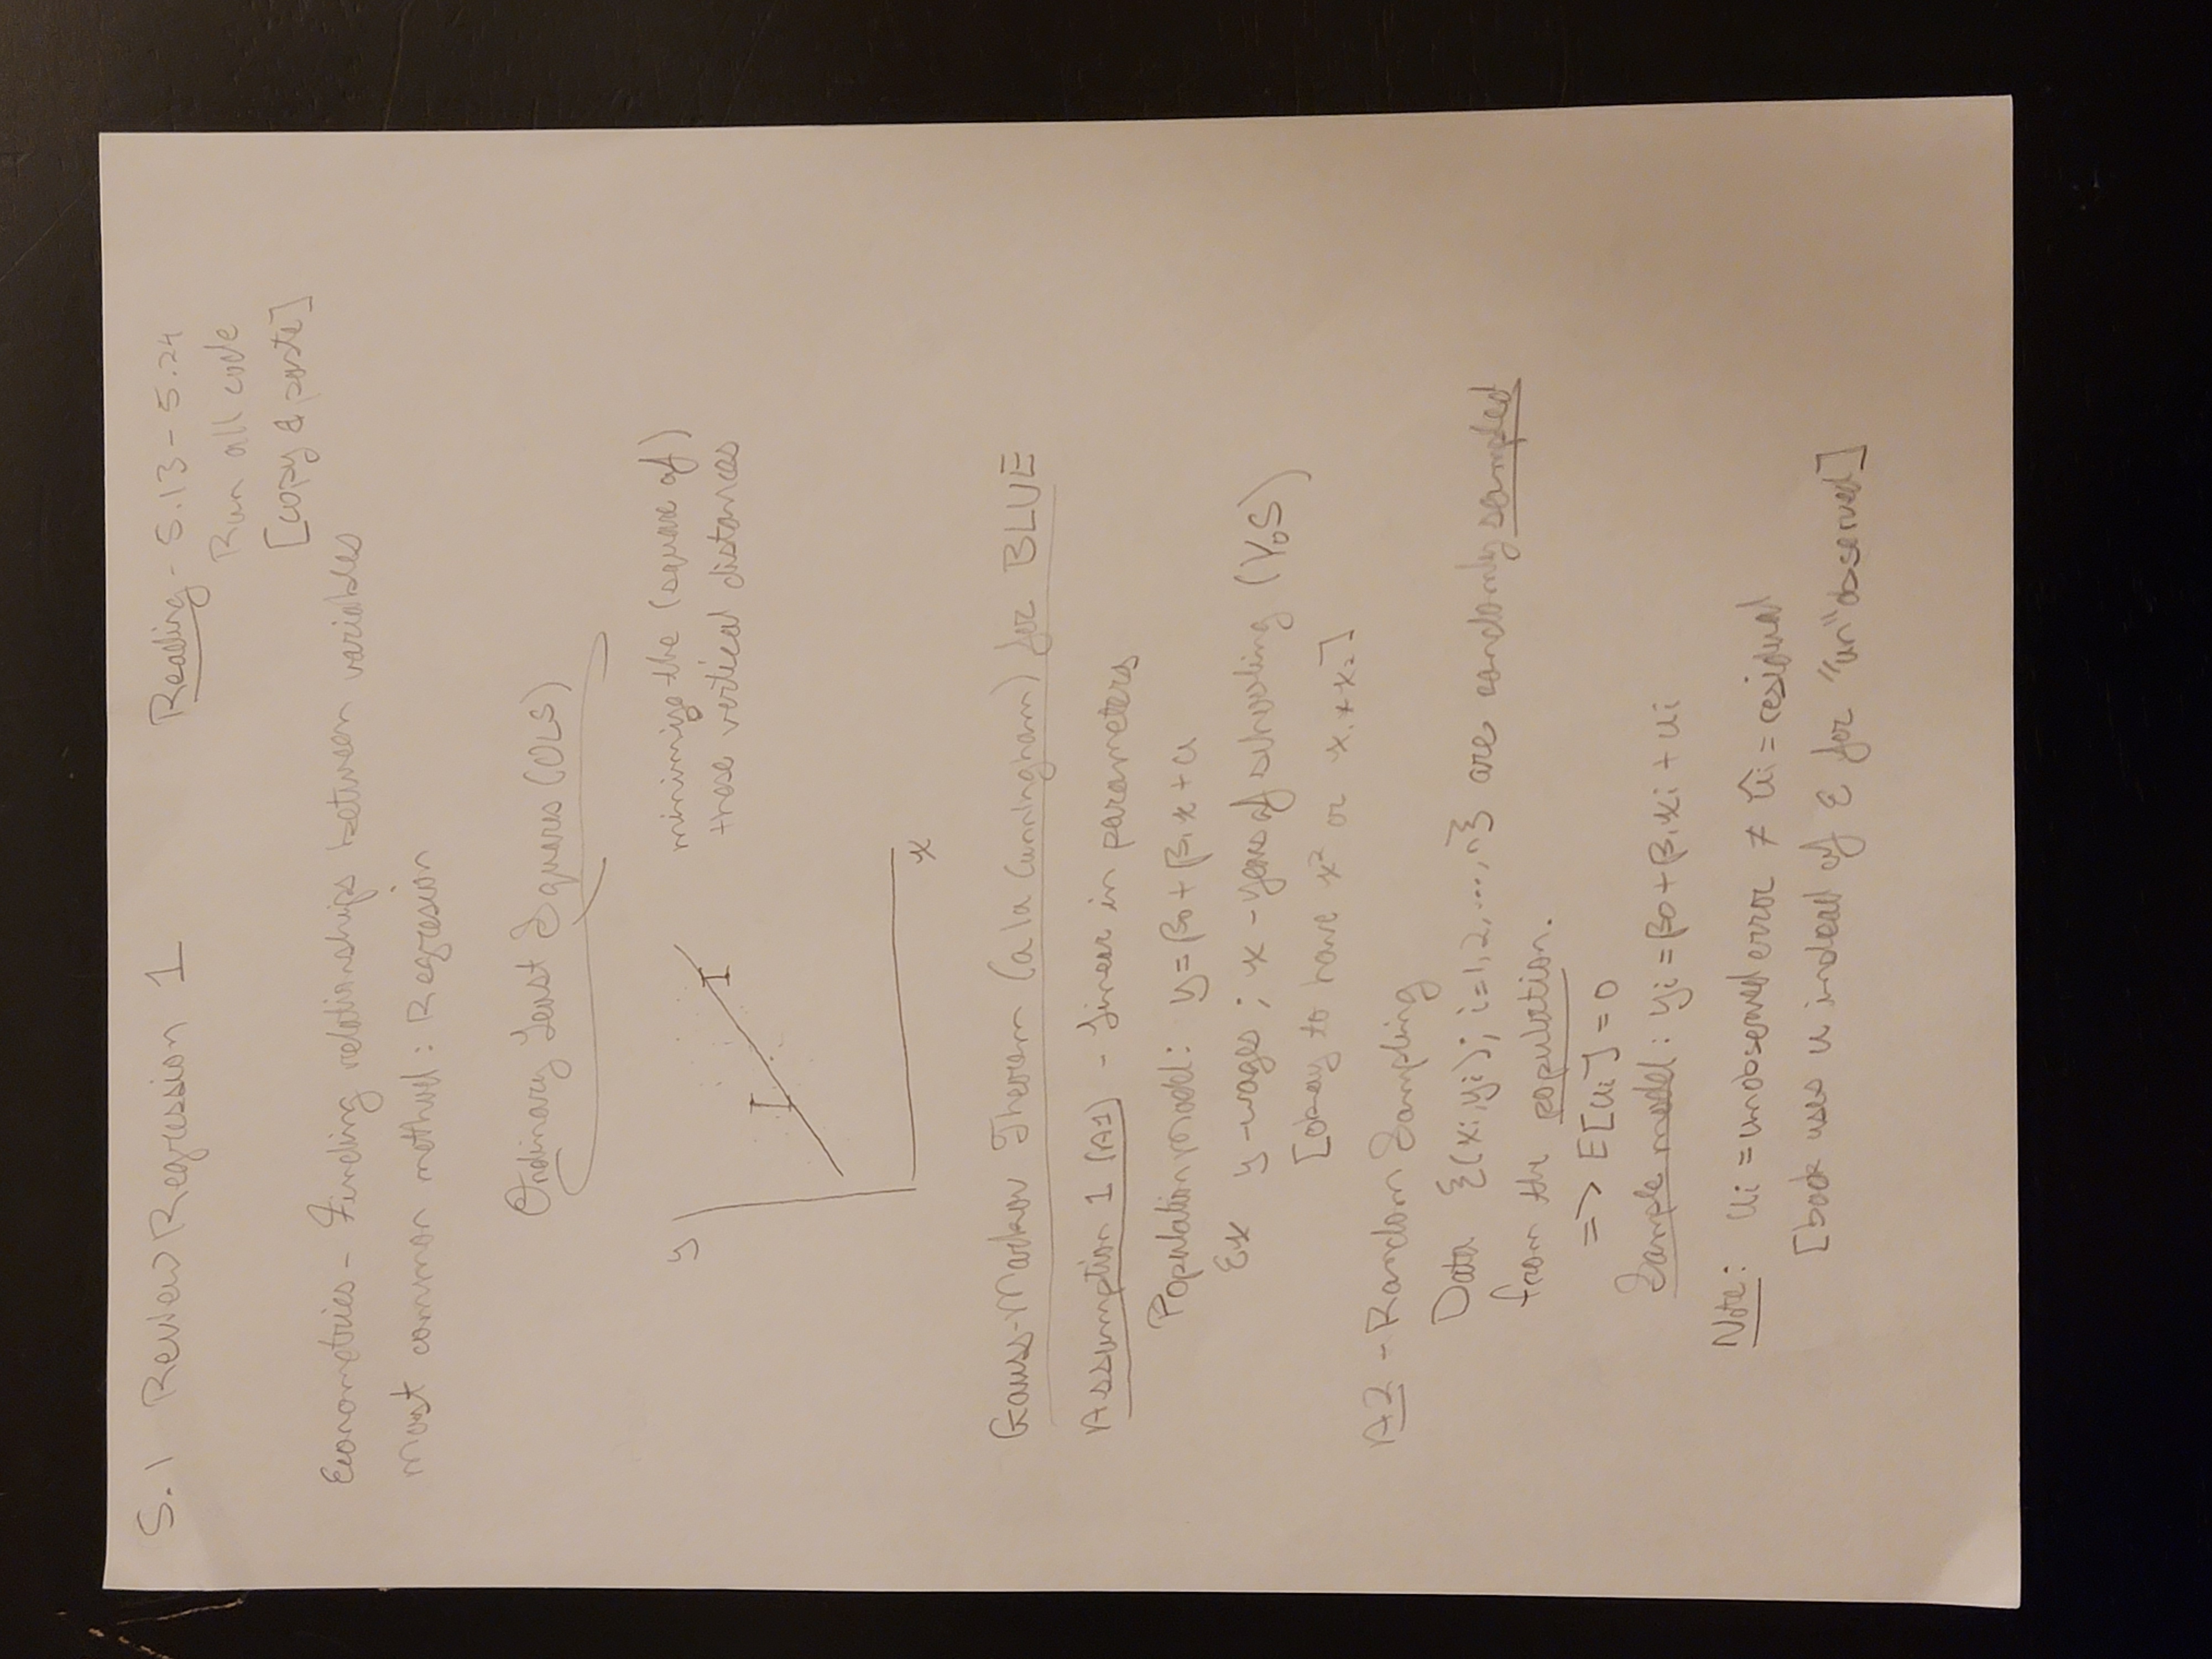 5.1 Review Regression 1
Reading - 5.13 - 5.24
Run all code
[copy & paste]
Econometrics - Finding relationships between variables
Most common method: Regresion
Ordinary Least Squares (OLS)
y
minimize the (square of)
these vertical distances
x
Gauss-Markov Theorem (a la Cunningham) for BLUE
Assumption 1 (A1) - Linear in parameters
Population model: y = β₀ + β₁x + u
Ex y - wages ; x - years of schooling (YoS)
[okay to have x² or x₁*x₂]
A2 - Random Sampling
Data {(xi,yi); i=1,2,...,n} are randomly sampled
from the population.
=> E[ui] = 0
Sample model: yi = β₀ + β₁xi + ui
Note: ui = unobserved error ≠ ûi = residual
[book uses u instead of ε for "un"observed]